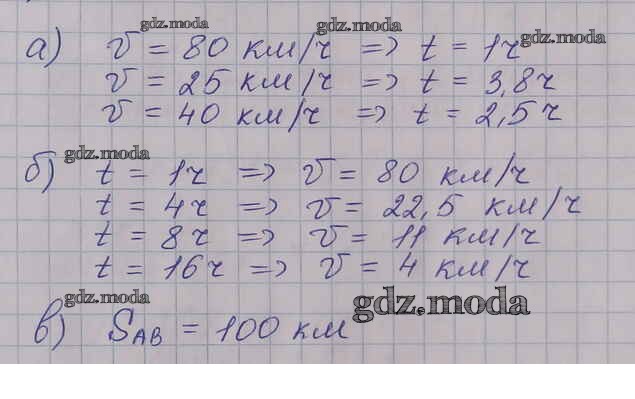 gdz.moda gdz.moda gdz.moda
а) v = 80 км/ч => t = 1ч
v = 25 км/ч => t = 3,8ч
v = 40 км/ч => t = 2,5ч
gdz.moda
б) t = 1ч => v = 80 км/ч
t = 4ч => v = 22,5 км/ч
t = 8ч => v = 11 км/ч
t = 16ч => v = 4 км/ч
gdz.moda gdz.moda
в) SАВ = 100 км